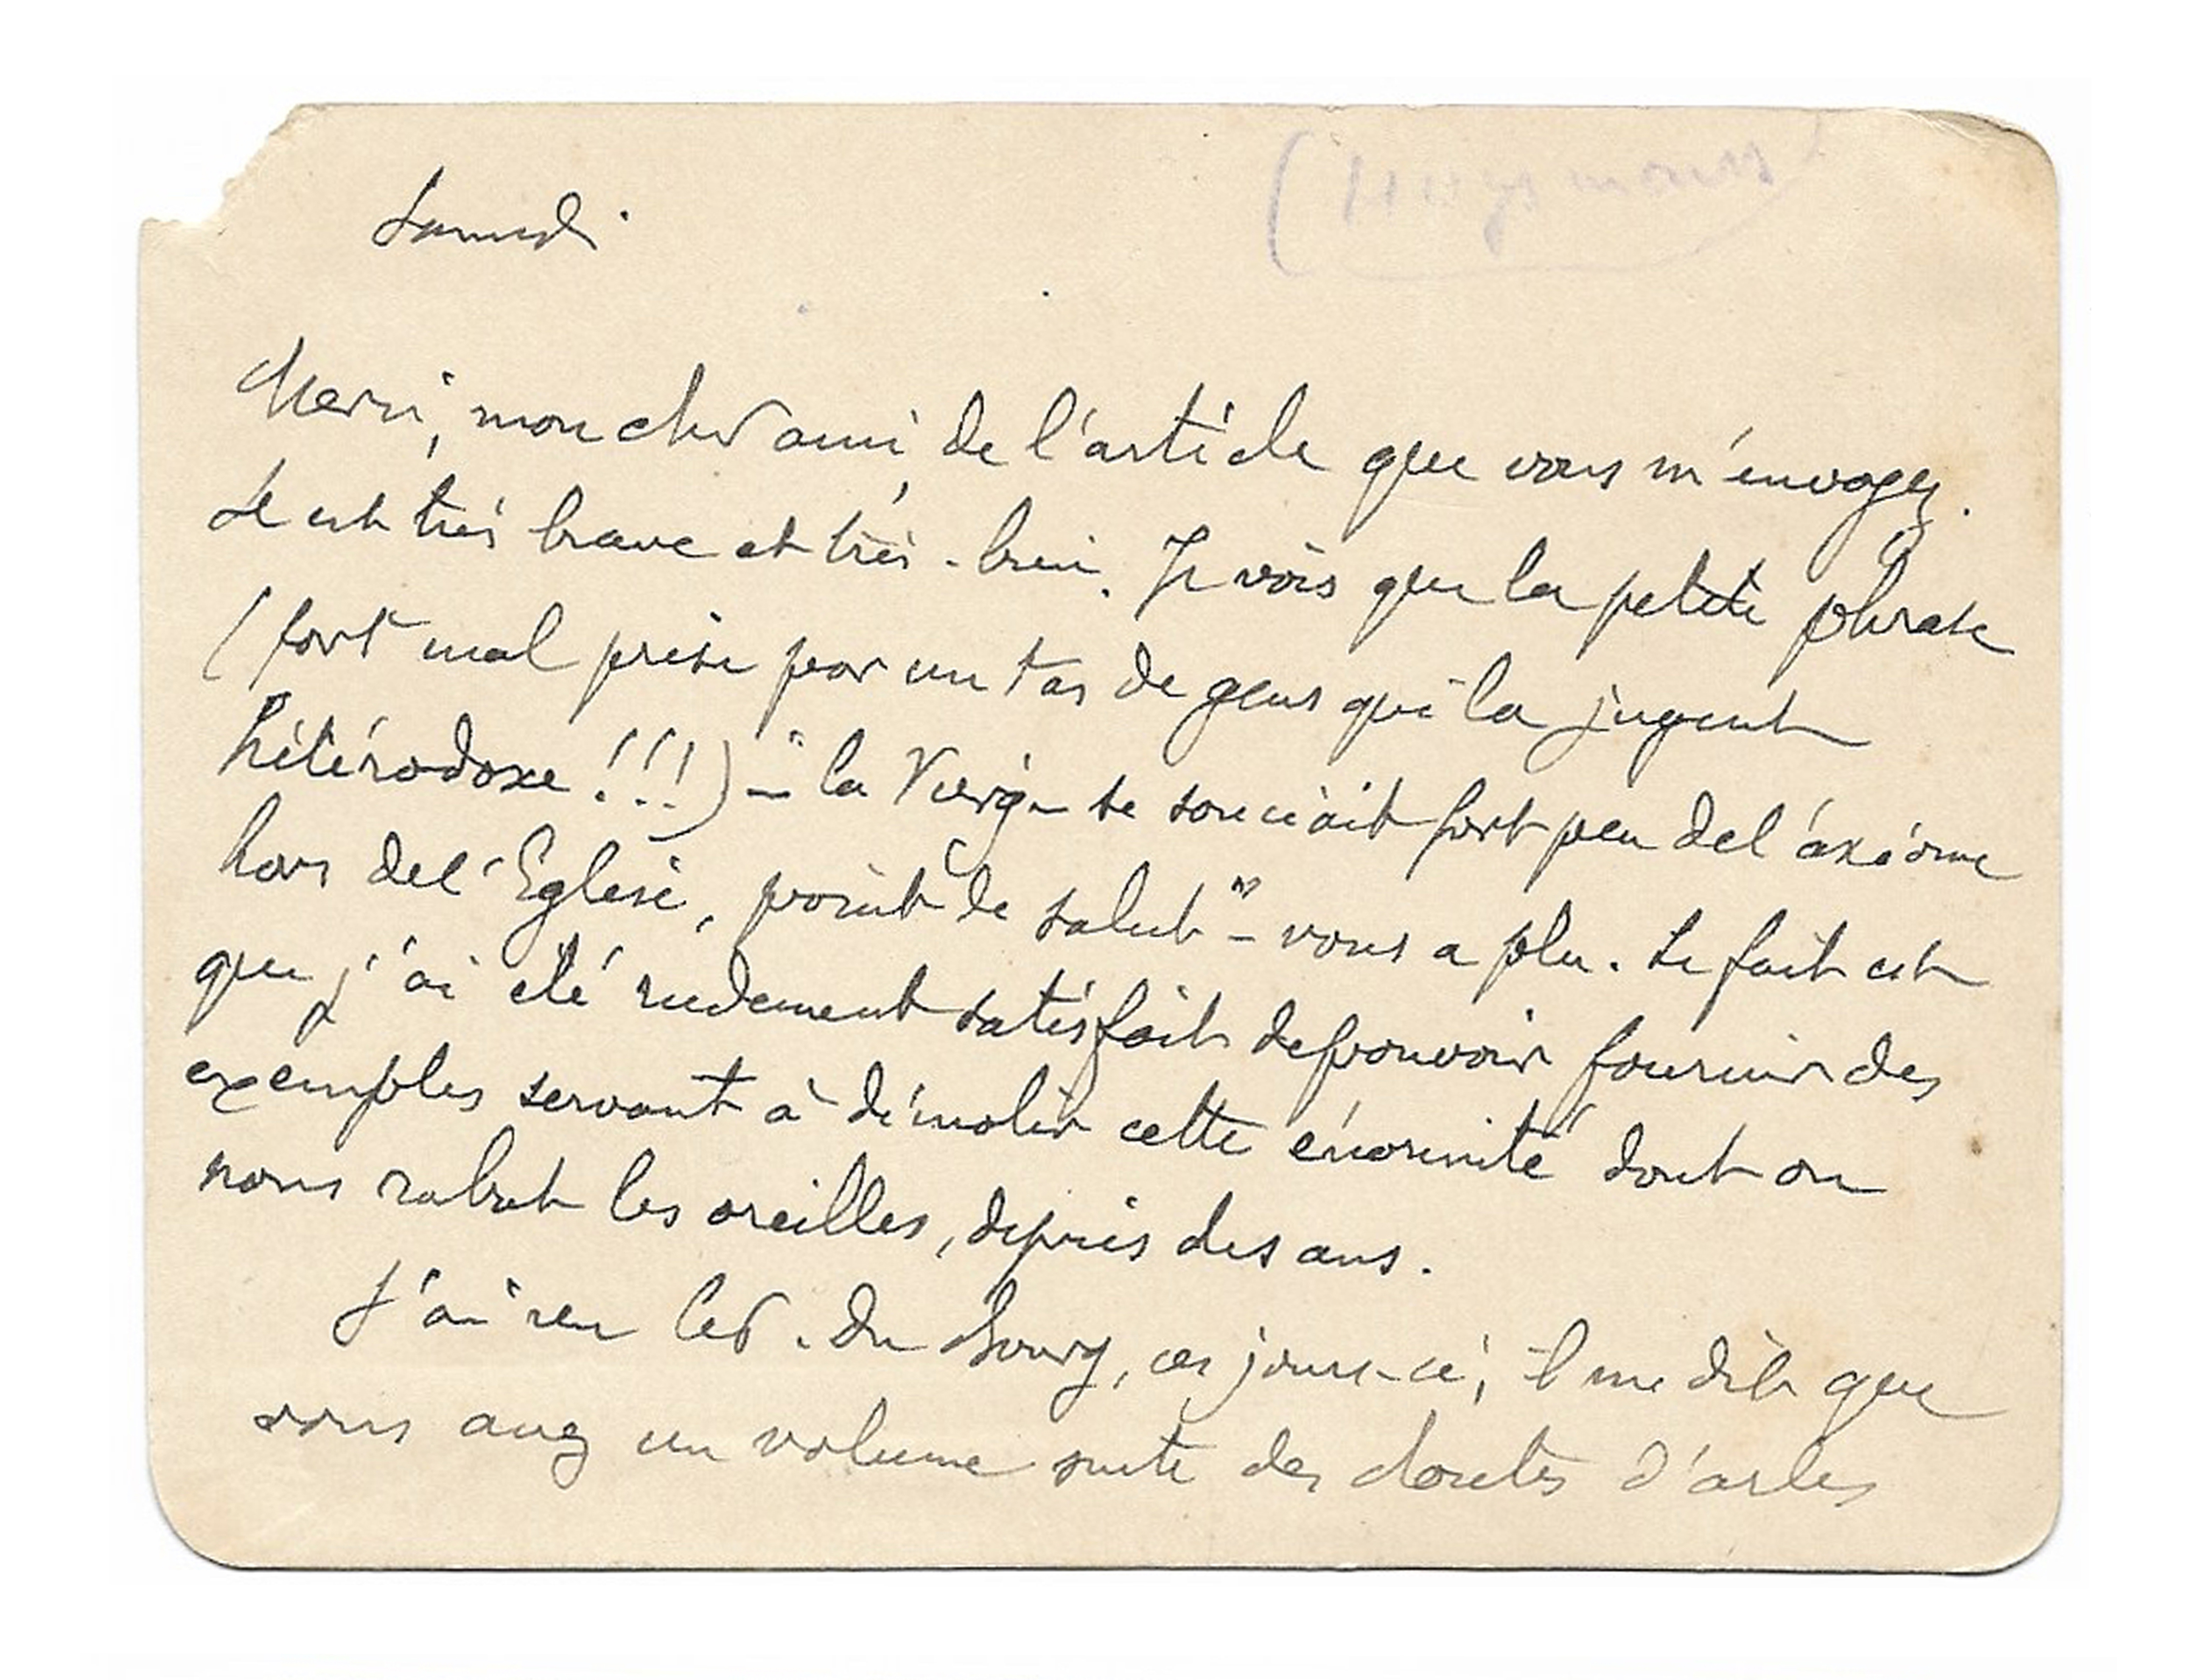 (Huysmans)
Samedi
Merci, mon cher ami, de l'article que vous m'envoyez.
Il est très brave et très-bien. Je vois que la petite phrase
(fort mal prise par un tas de gens qui la jugent
hétérodoxe!!!) - "la Vierge se souciait fort peu de l'axiome
hors de l'Eglise, point de salut" - vous a plu. Le fait est
que j'ai été rudement satisfait de pouvoir fournir des
exemples servant à démolir cette énormité dont on
nous rabat les oreilles, depuis des ans.
J'ai vu du Bourg, ces jours-ci; il me dit que
vous avez un volume suite des d'arles